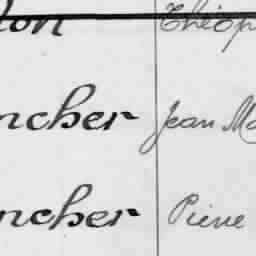 lon Théop
ncher Jean Ma
ncher Pierre